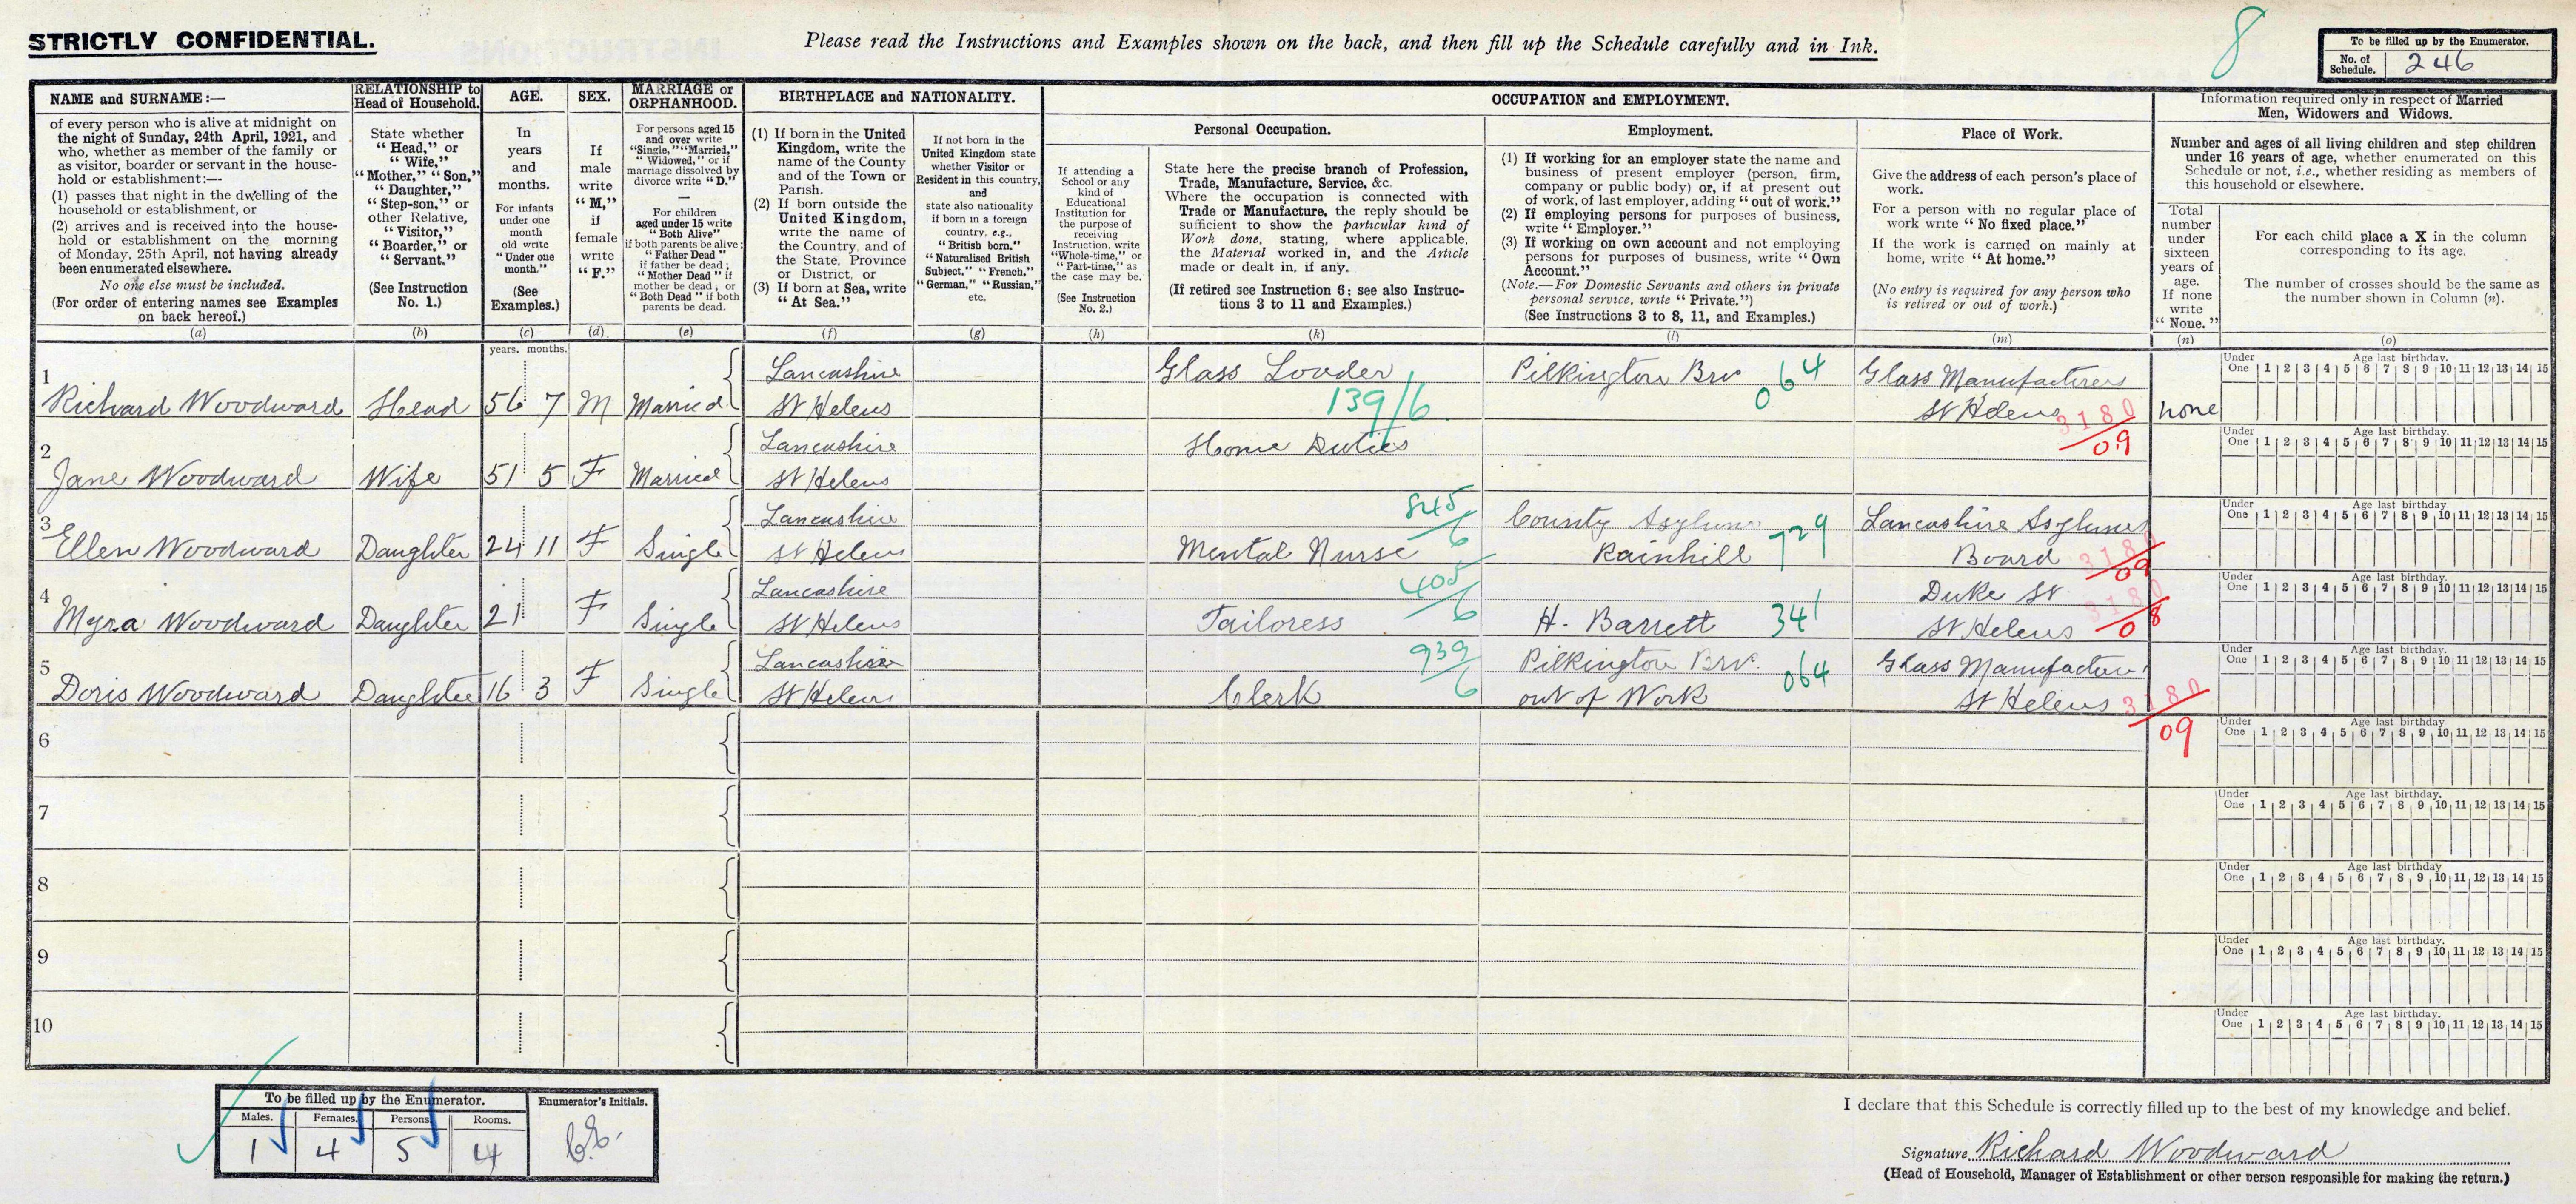 STRICTLY CONFIDENTIAL.
Please read the Instructions and Examples shown on the back, and then fill up the Schedule carefully and in Ink.
8
To be filled up by the Enumerator.
No. of Schedule. 246
NAME and SURNAME:—
of every person who is alive at midnight on
the night of Sunday, 24th April, 1921, and
who, whether as member of the family or
as visitor, boarder or servant in the house-
hold or establishment:—
(1) passes that night in the dwelling of the
household or establishment, or
(2) arrives and is received into the house-
hold or establishment on the morning
of Monday, 25th April, not having already
been enumerated elsewhere.
No one else must be included.
(For order of entering names see Examples
on back hereof.)
(a)
RELATIONSHIP to
Head of Household.
State whether
“Head,” or
“Wife,”
“Mother,” “Son,”
“Daughter,”
“Step-son,” or
other Relative,
“Visitor,”
“Boarder,” or
“Servant.”
(See Instruction
No. 1.)
(b)
AGE.
In
years
and
months.
For infants
under one
month
old write
“Under one
month.”
(See
Examples.)
(c)
SEX.
If
male
write
“M,”
if
female
write
“F.”
(d)
MARRIAGE or
ORPHANHOOD.
For persons aged 15
and over write
“Single,” “Married,”
“Widowed,” or if
marriage dissolved by
divorce write “D.”
—
For children
aged under 15 write
“Both Alive”
if both parents be alive;
“Father Dead”
if father be dead;
“Mother Dead” if
mother be dead, or
“Both Dead” if both
parents be dead.
(e)
BIRTHPLACE and NATIONALITY.
(1) If born in the United
Kingdom, write the
name of the County
and of the Town or
Parish.
(2) If born outside the
United Kingdom,
write the name of
the Country, and of
the State, Province
or District, or
(3) If born at Sea, write
“At Sea.”
(f)
If not born in the
United Kingdom state
whether Visitor or
Resident in this country,
and
state also nationality
if born in a foreign
country, e.g.,
“British born,”
“Naturalised British
Subject,” “French,”
“German,” “Russian,”
etc.
(g)
OCCUPATION and EMPLOYMENT.
Personal Occupation.
If attending a
School or any
kind of
Educational
Institution for
the purpose of
receiving
Instruction, write
“Whole-time,” or
“Part-time,” as
the case may be.
(See Instruction
No. 2.)
(h)
State here the precise branch of Profession,
Trade, Manufacture, Service, &c.
Where the occupation is connected with
Trade or Manufacture, the reply should be
sufficient to show the particular kind of
Work done, stating, where applicable,
the Material worked in, and the Article
made or dealt in, if any.
(If retired see Instruction 6; see also Instruc-
tions 3 to 11 and Examples.)
(k)
Employment.
(1) If working for an employer state the name and
business of present employer (person, firm,
company or public body) or, if at present out
of work, of last employer, adding “out of work.”
(2) If employing persons for purposes of business,
write “Employer.”
(3) If working on own account and not employing
persons for purposes of business, write “Own
Account.”
(Note.—For Domestic Servants and others in private
personal service, write “Private.”)
(See Instructions 3 to 8, 11, and Examples.)
(l)
Place of Work.
Give the address of each person's place of
work.
For a person with no regular place of
work write “No fixed place.”
If the work is carried on mainly at
home, write “At home.”
(No entry is required for any person who
is retired or out of work.)
(m)
Information required only in respect of Married
Men, Widowers and Widows.
Number and ages of all living children and step children
under 16 years of age, whether enumerated on this
Schedule or not, i.e., whether residing as members of
this household or elsewhere.
Total
number
under
sixteen
years of
age.
If none
write
“None.”
(n)
For each child place a X in the column
corresponding to its age.
The number of crosses should be the same as
the number shown in Column (n).
(o)
years. months.
1
Richard Woodward Head 56 7 M Married
Lancashire
St Helens
Glass Loader
139/6
Pilkington Bros
064
Glass Manufacturers
St Helens
3180
09
none
Under One Age last birthday. 1 2 3 4 5 6 7 8 9 10 11 12 13 14 15
2
Jane Woodward Wife 51 5 F Married
Lancashire
St Helens
Home Duties
Under One Age last birthday. 1 2 3 4 5 6 7 8 9 10 11 12 13 14 15
3
Ellen Woodward Daughter 24 11 F Single
Lancashire
St Helens
845/6
Mental Nurse
County Asylum
Rainhill
729
Lancashire Asylums
Board
3180
09
Under One Age last birthday 1 2 3 4 5 6 7 8 9 10 11 12 13 14 15
4
Myra Woodward Daughter 21 F Single
Lancashire
St Helens
405/6
Tailoress
H. Barrett
341
Duke St
St Helens
3180
08
Under One Age last birthday. 1 2 3 4 5 6 7 8 9 10 11 12 13 14 15
5
Doris Woodward Daughter 16 3 F Single
Lancashire
St Helens
939/6
Clerk
Pilkington Bros.
out of Work
064
Glass Manufacturers
St Helens
3180
09
Under One Age last birthday. 1 2 3 4 5 6 7 8 9 10 11 12 13 14 15
6
Under One Age last birthday 1 2 3 4 5 6 7 8 9 10 11 12 13 14 15
7
Under One Age last birthday. 1 2 3 4 5 6 7 8 9 10 11 12 13 14 15
8
Under One Age last birthday 1 2 3 4 5 6 7 8 9 10 11 12 13 14 15
9
Under One Age last birthday. 1 2 3 4 5 6 7 8 9 10 11 12 13 14 15
10
Under One Age last birthday. 1 2 3 4 5 6 7 8 9 10 11 12 13 14 15
To be filled up by the Enumerator.
Males. Females. Persons. Rooms.
1 4 5 4
Enumerator's Initials.
I declare that this Schedule is correctly filled up to the best of my knowledge and belief.
Signature Richard Woodward
(Head of Household, Manager of Establishment or other person responsible for making the return.)